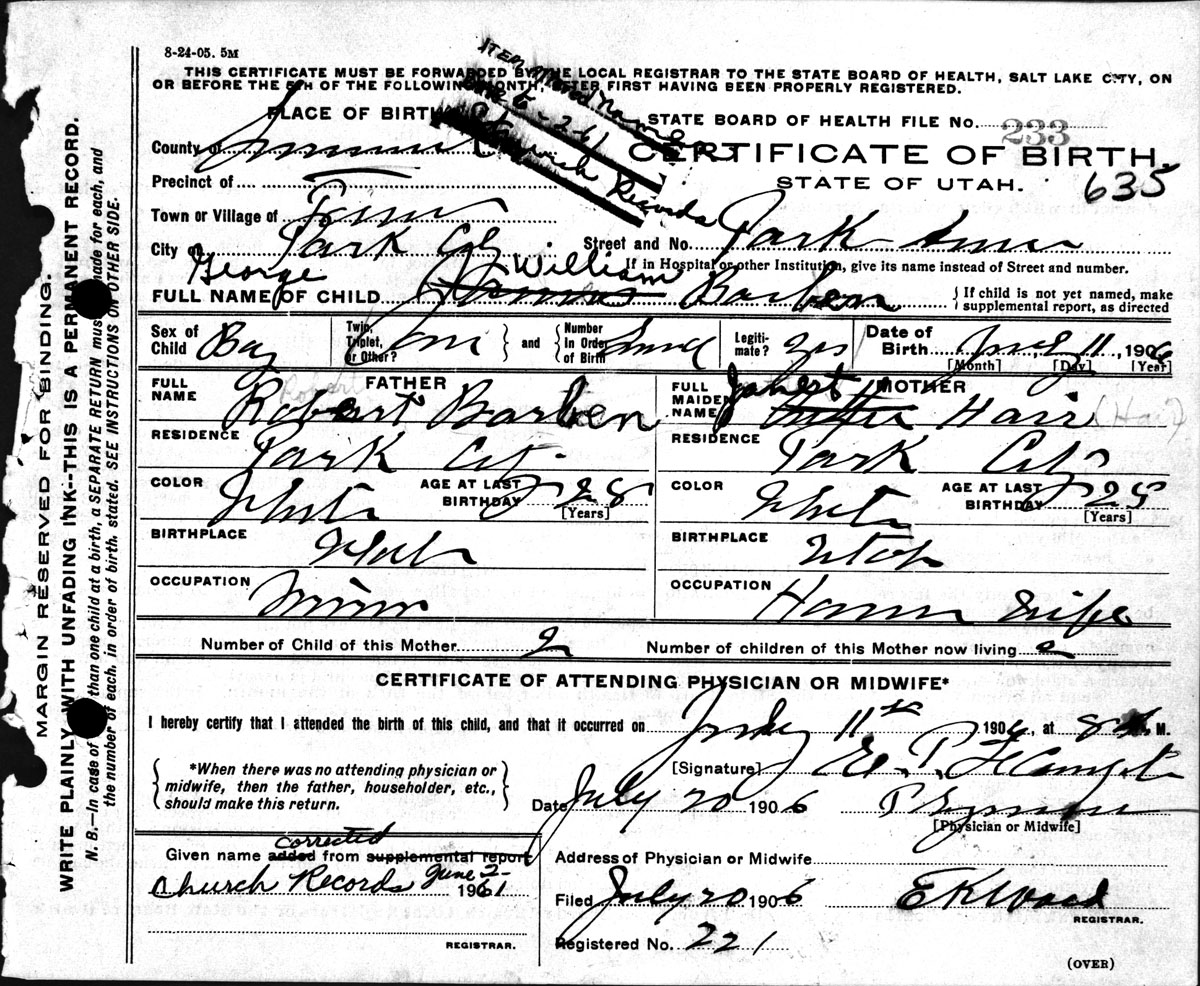 8-24-05. 5M
THIS CERTIFICATE MUST BE FORWARDED BY THE LOCAL REGISTRAR TO THE STATE BOARD OF HEALTH, SALT LAKE CITY, ON
OR BEFORE THE 5TH OF THE FOLLOWING MONTH, AFTER FIRST HAVING BEEN PROPERLY REGISTERED.
Item name
6-2-61
Church Records
PLACE OF BIRTH
STATE BOARD OF HEALTH FILE No. 233
County of Summit
CERTIFICATE OF BIRTH.
Precinct of
STATE OF UTAH.
635
Town or Village of
City of Park City
Street and No. Park
If in Hospital or other Institution, give its name instead of Street and number.
George William
FULL NAME OF CHILD James Barben
If child is not yet named, make
supplemental report, as directed
Sex of Child Boy
Twin, Triplet, or Other?
and
Number In Order of Birth
Legiti- mate? Yes
Date of Birth July 11, 1906
[Month] [Day] [Year]
FATHER
FULL NAME Robert Barben
RESIDENCE Park City
COLOR White
AGE AT LAST BIRTHDAY 28
[Years]
BIRTHPLACE Utah
OCCUPATION Miner
MOTHER
FULL MAIDEN NAME Hair (Hair)
RESIDENCE Park City
COLOR White
AGE AT LAST BIRTHDAY 25
[Years]
BIRTHPLACE Utah
OCCUPATION House wife
Number of Child of this Mother 2
Number of children of this Mother now living 2
CERTIFICATE OF ATTENDING PHYSICIAN OR MIDWIFE*
I hereby certify that I attended the birth of this child, and that it occurred on July 11th 1906, at 8 M.
*When there was no attending physician or
midwife, then the father, householder, etc.,
should make this return.
[Signature] E. P.
Date July 20 1906
[Physician or Midwife]
corrected
Given name added from supplemental report
Church Records June 2- 1961
REGISTRAR.
Address of Physician or Midwife
Filed July 20 1906 E K Wood
REGISTRAR.
Registered No. 221
(OVER)
MARGIN RESERVED FOR BINDING.
WRITE PLAINLY WITH UNFADING INK--THIS IS A PERMANENT RECORD.
N. B.—In case of than one child at a birth, a SEPARATE RETURN must made for each, and
the number of each, in order of birth, stated. SEE INSTRUCTIONS ON OTHER SIDE.